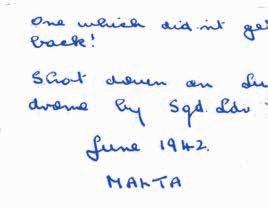 One which did.nt ge
back!
Shot down on Lu
drome by Sqd. Ldr
June 1942.
MALTA